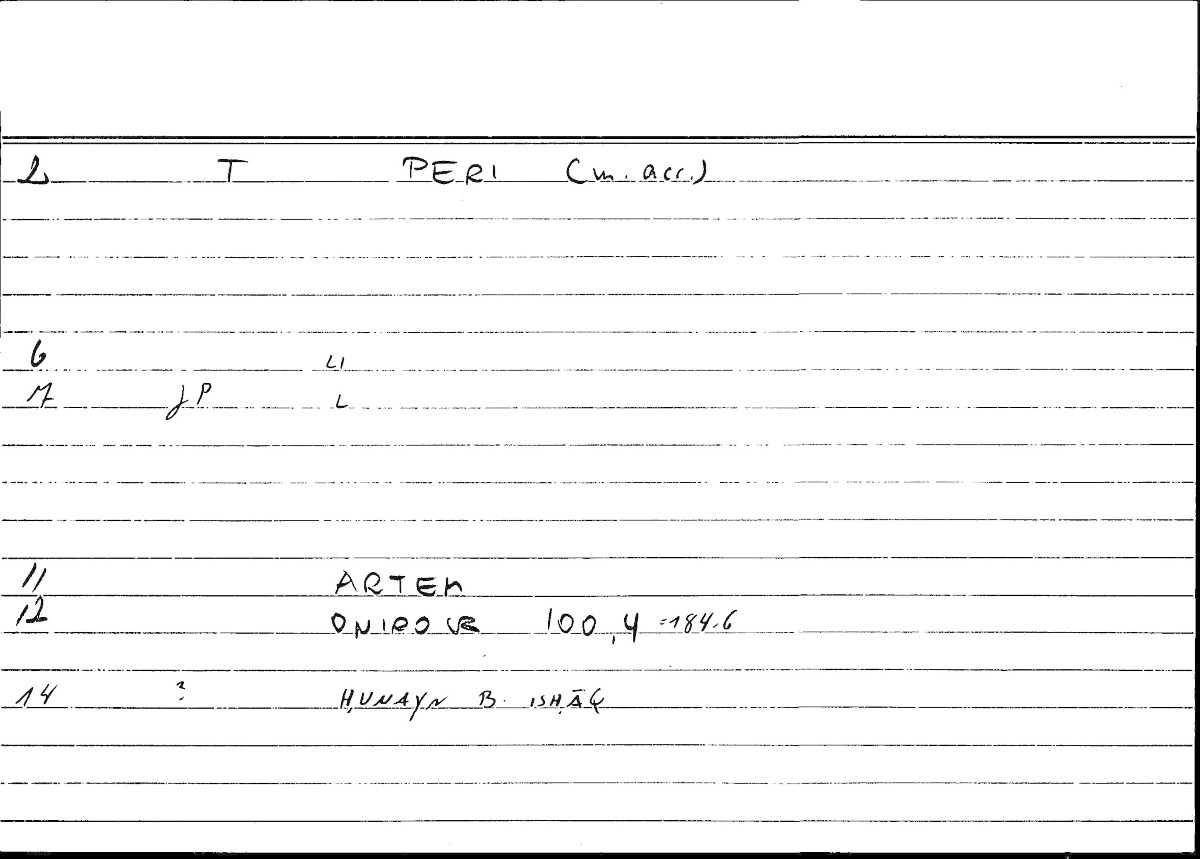 2 T PERI (m. acc.)
6 LI
7 JP L
11 ARTEM
12 ONIROCR 100,4 =184.6
14 ? ḤUNAYN B. ISḤĀQ